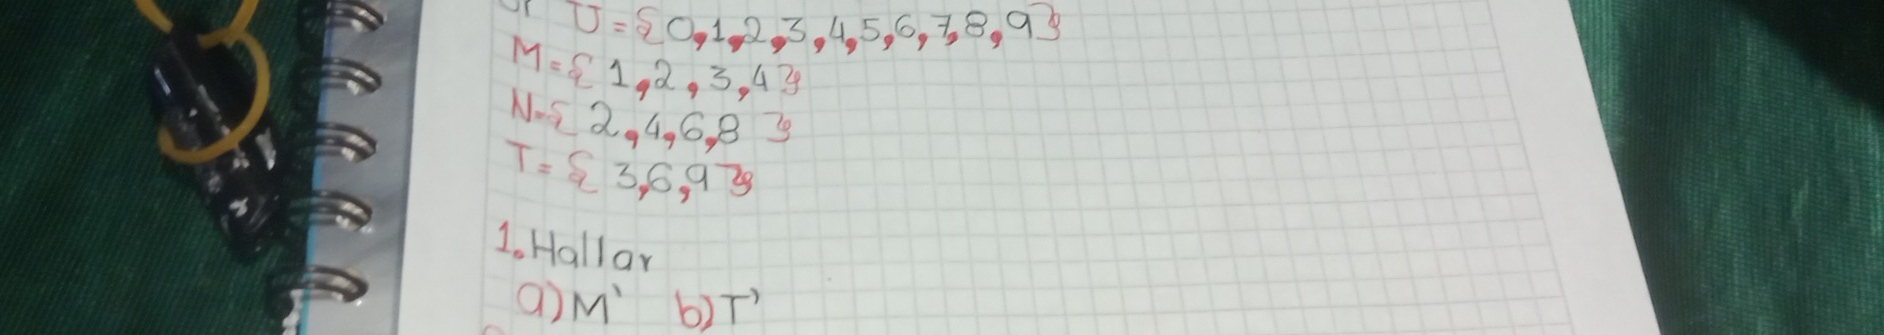 U={0,1,2,3,4,5,6,7,8,9}
M={1,2,3,4}
N={2,4,6,8}
T={3,6,9}
1. Hallar
a) M' b) T'